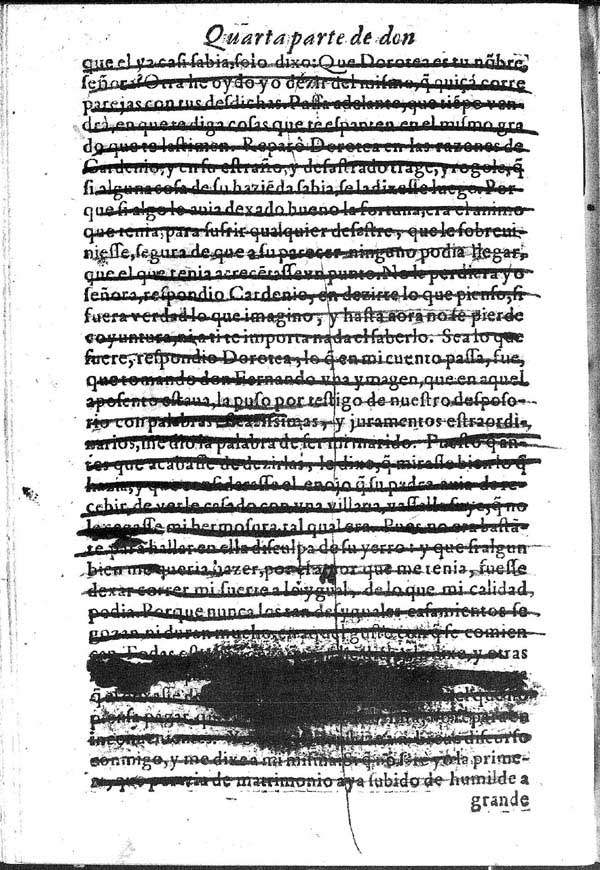 Quarta parte de don
que el ya casi sabia, solo dixo: Que Dorotea es tu nõbre
señora? Otra he oydo yo dezir del mismo, q̃ quiçá corre
parejas con tus desdichas. Passa adelante, que tiẽpo ven-
drà, en que te diga cosas que te espanten en el mismo gra
do que te lastimen. Reparò Dorotea en las razones de
Cardenio, y en su estraño, y desastrado trage, y rogole, q̃
si alguna cosa de su haziẽda sabia, se la dixesse luego. Por
que si algo le auia dexado bueno la fortuna, era el animo
que tenia, para sufrir qualquier desastre, que le sobreui-
niesse, segura de que a su parecer ninguno podia llegar,
que el que tenia acrecẽtasse vn punto. No le perdiera yo
señora, respondio Cardenio, en dezirte lo que pienso, si
fuera verdad lo que imagino, y hasta aora no se pierde
coyuntura, ni a ti te importa nada el saberlo. Sea lo que
fuere, respondio Dorotea, lo q̃ en mi cuento passa, fue,
que tomando don Fernando vna ymagen, que en aquel
aposento estaua, la puso por testigo de nuestro desposo-
rio con palabras eficacissimas, y juramentos estraordi-
narios, me dio la palabra de ser mi marido. Puesto q̃ an-
tes que acabasse de dezirlas, le dixe, q̃ mirasse bien lo q̃
hazia, y que considerasse el enojo q̃ su padre auia de re-
cebir, de verle casado con vna villana, vassalla suya, q̃ no
le cegasse mi hermosura, tal qual era. Pues no era bastã-
te para hallar en ella disculpa de su yerro: y que si algun
bien me queria hazer, por el amor que me tenia, fuesse
dexar correr mi suerte a lo ygual, de lo que mi calidad,
podia. Porque nunca los tan desyguales casamientos se
gozan, ni duran mucho en aquel gusto con q̃ se comien
çan. Todas dixe, y otras
el que no
piensa pagar, que reparar en
discurso
conmigo, y me dixe a mi misma. Si q̃ no sere yo la prime-
ra, que por via de matrimonio aya subido de humilde a
grande